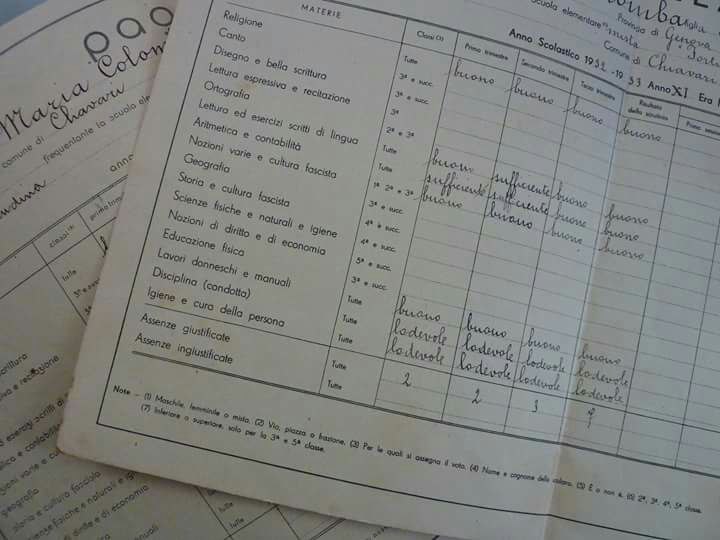 pag
Maria Colom
comune di Chiavari
frequentante la scuola ele
classi (1)
primo trim
tutte
scuola elementare mista
Provincia di Genova
Comune di Chiavari
Anno Scolastico 1932-1933 Anno XI Era
MATERIE
Classi (1)
Primo trimestre
Secondo trimestre
Terzo trimestre
Risultato dello scrutinio
Religione Tutte buono buono buono buono
Canto 3ª e succ.
Disegno e bella scrittura 3ª e succ.
Lettura espressiva e recitazione 3ª
Ortografia 2ª e 3ª
Lettura ed esercizi scritti di lingua Tutte buono sufficiente buono buono
Aritmetica e contabilità Tutte sufficiente sufficiente buono buono
Nozioni varie e cultura fascista 1ª 2ª e 3ª buono buono buono buono
Geografia 3ª e succ.
Storia e cultura fascista 4ª e succ.
Scienze fisiche e naturali e igiene 4ª e succ.
Nozioni di diritto e di economia 5ª e succ.
Educazione fisica 3ª e succ.
Lavori donneschi e manuali Tutte buono buono buono buono
Disciplina (condotta) Tutte lodevole lodevole lodevole lodevole
Igiene e cura della persona Tutte lodevole lodevole lodevole lodevole
Assenze giustificate Tutte 2 2 3 7
Assenze ingiustificate Tutte
Note - (1) Maschile, femminile o mista. (2) Via, piazza o frazione. (3) Per le quali si assegna il voto. (4) Nome e cognome dello scolaro. (5) È o non è. (6) 2ª, 3ª, 4ª, 5ª classe.
(7) Inferiore o superiore, solo per la 3ª e 5ª classe.